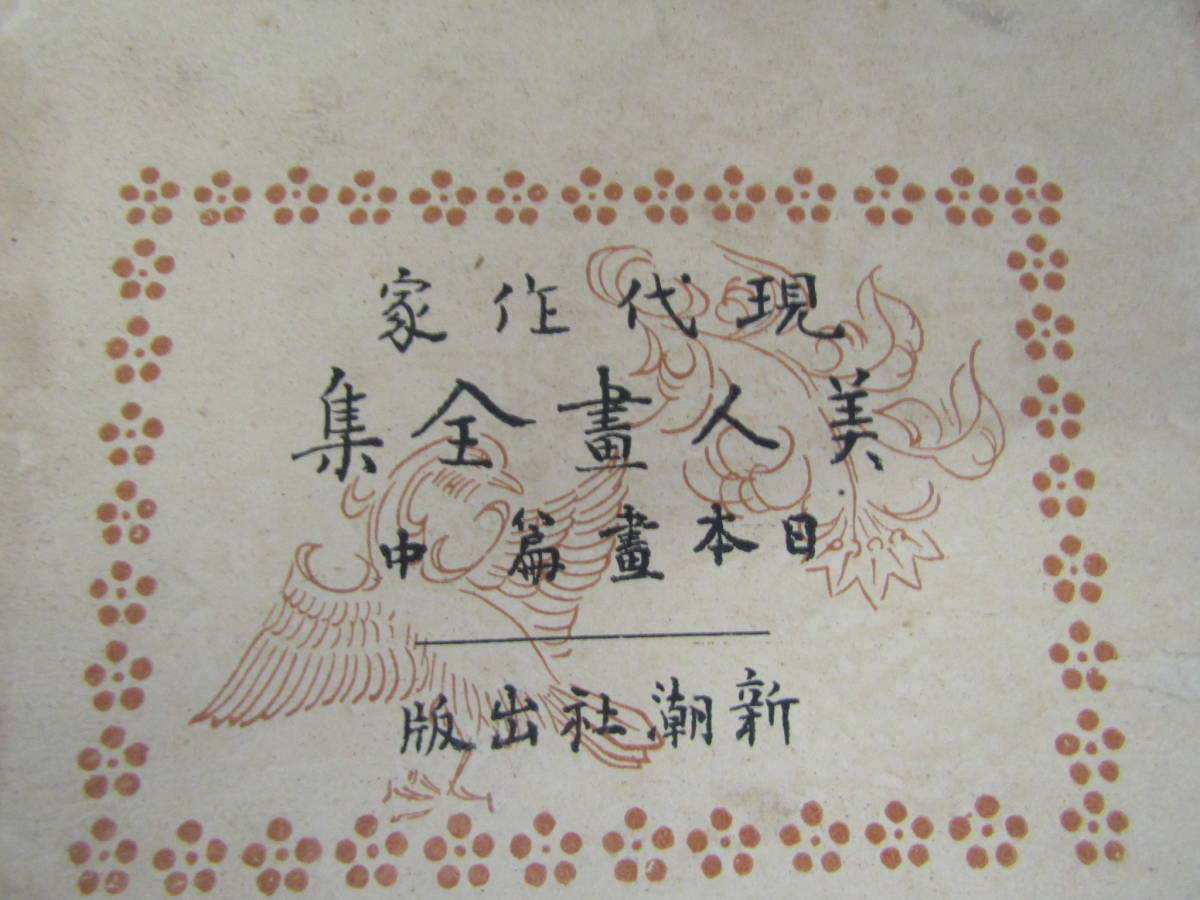 現代作家
美人畫全集
日本畫篇中
新潮社出版